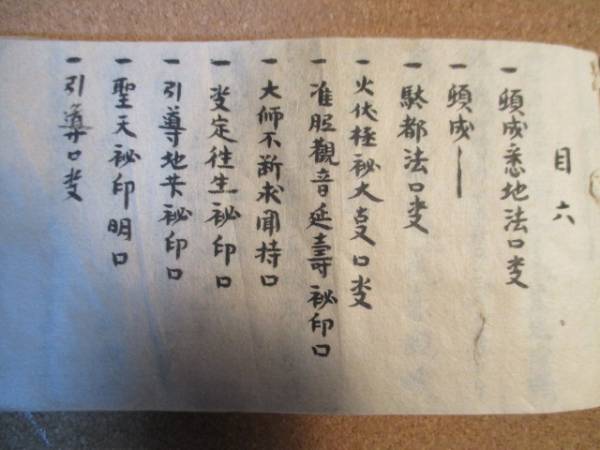 目六
一頓成悉地法口决
一頓成｜
一駄都法口决
一火伏極秘大事口决
一准胝觀音延壽秘印口
一大師不断求聞持口
一决定往生秘印口
一引導地蔵秘印口
一聖天秘印明口
一引導口决